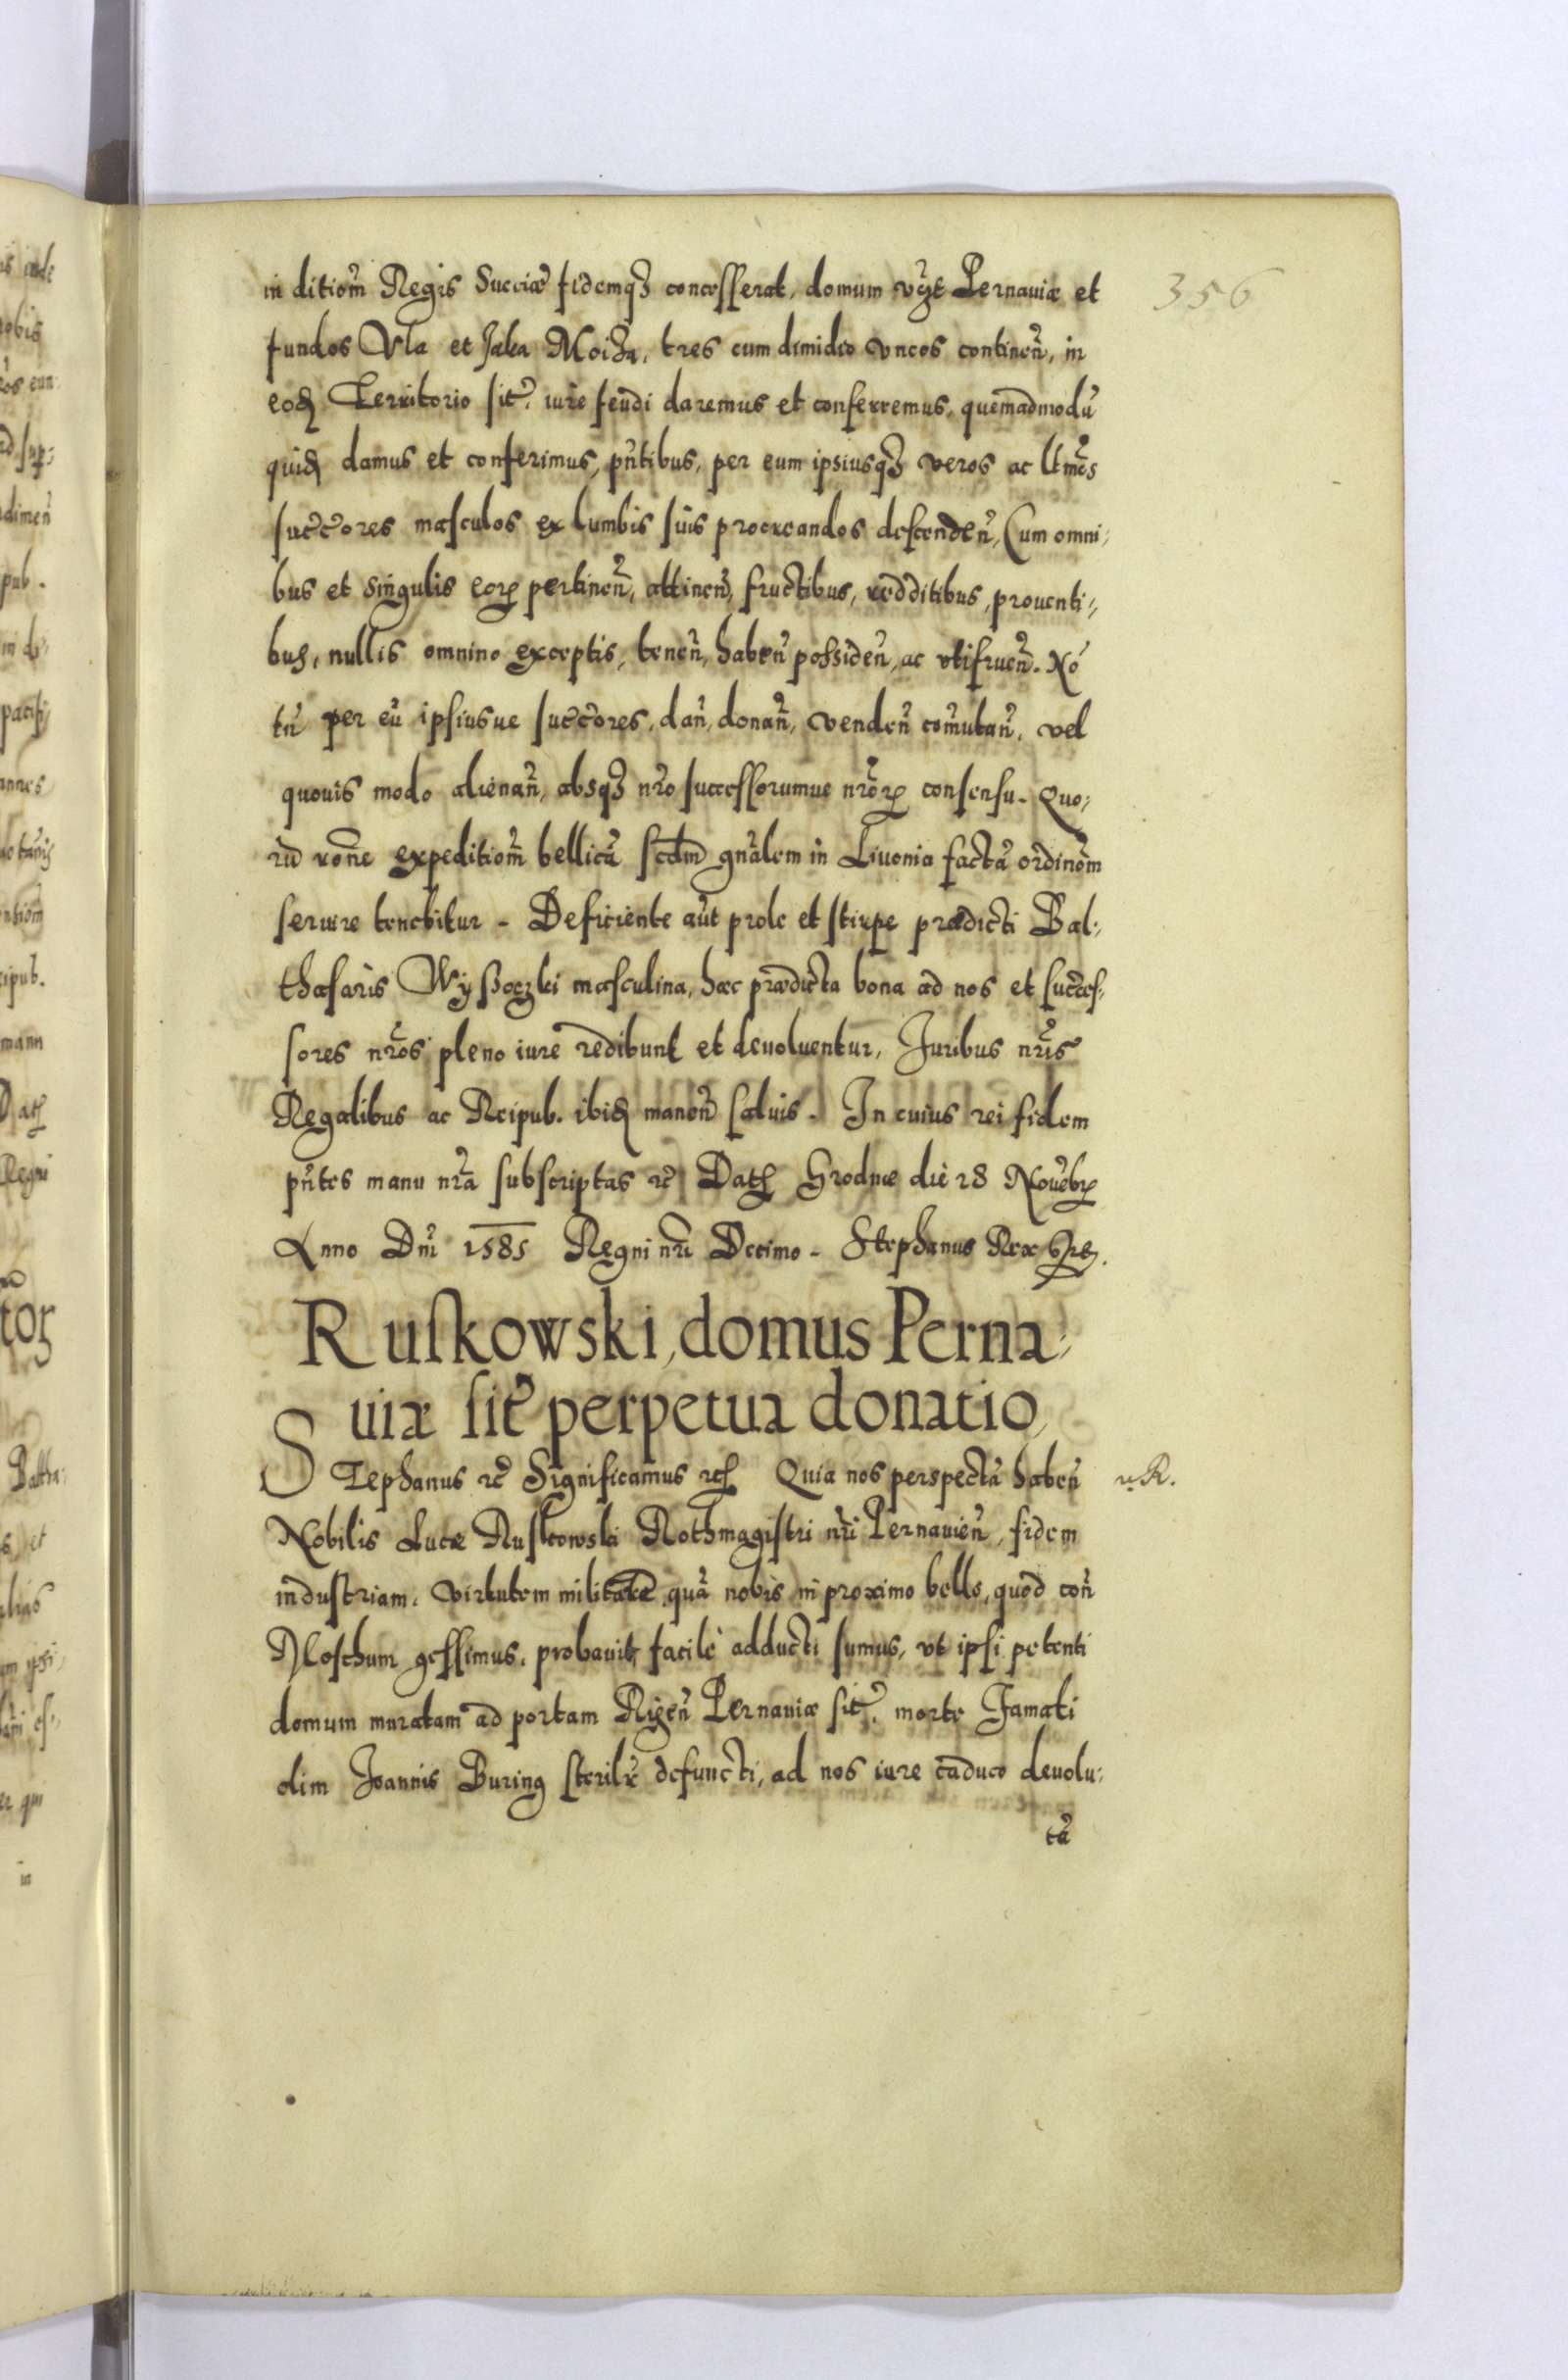 356
in ditioñ Regis Sueciæ fidemq₃ concesserat, domum vñt Pernauiæ et
fundos Vla et Jaka Moiza, tres cum dimidio vncos continen̄, in
eod̨ Territorio sit̃, iure feudi daremus et conferremus, quemadmodū
quid̨ damus et conferimus, pñtibus, per eum ipsiusq₃ veros ac ltmōs
succ̃ores masculos ex lumbis suis procreandos descenden̄, Cum omni,
bus et singulis eorꝝ pertinen̄, attinen̄, fructibus, redditibus, prouenti,
bus, nullis omnino exceptis, tenen̄, haben̄ possiden̄, ac vtifruen̄. Nō
tñ per eū ipsiusue succ̃ores, dan̄, donan̄, venden̄ com̄utan̄, vel
quouis modo alienan̄, absq₃ nr̄o successorumue nr̄orꝝ consensu. Quo,
rū rōne expeditiom̄ bellicā scdm̄ gn̄alem in Liuonia factā ordinōm
seruire tenebitur. Deficiente aūt prole et stirpe prædicti Bal,
thasaris Wyßoczki masculina, hæc prædicta bona ad nos et succes,
sores nr̄os pleno iure redibunt et deuoluentur, Juribus nr̄is
Regalibus ac Reipub. ibid̨ manen̄ saluis. In cuius rei fidem
pñtes manu nr̄a subscriptas ꝛc̃ Datꝭ Grodnæ die 28 Nouēbrꝭ
Anno Dn̄i 1585 Regni nr̄i Decimo. Stephanus Rex
Ruskowski, domus Perna,
uiæ sit̃ perpetua donatio,
STephanus ꝛc̃ Significamus ꝛcꝭ Quia nos perspectā haben̄
Nobilis Lucæ Ruskowski Rothmagistri nr̄i Pernauien̄, fidem
industriam, virtutem militarē, quā nobis in proximo bello, quod con̄
Moschum gessimus, probauit, facilè adducti sumus, vt ipsi petenti
domum muratam ad portam Rigen̄ Pernauiæ sit̃, morte Famati
olim Joannis Buring sterilr̃ defuncti, ad nos iure caduco deuolu,
tā